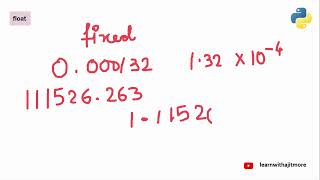 float
fixed
0.000132 1.32 × 10⁻⁴
111526.263
1.1152
learnwithajitmore